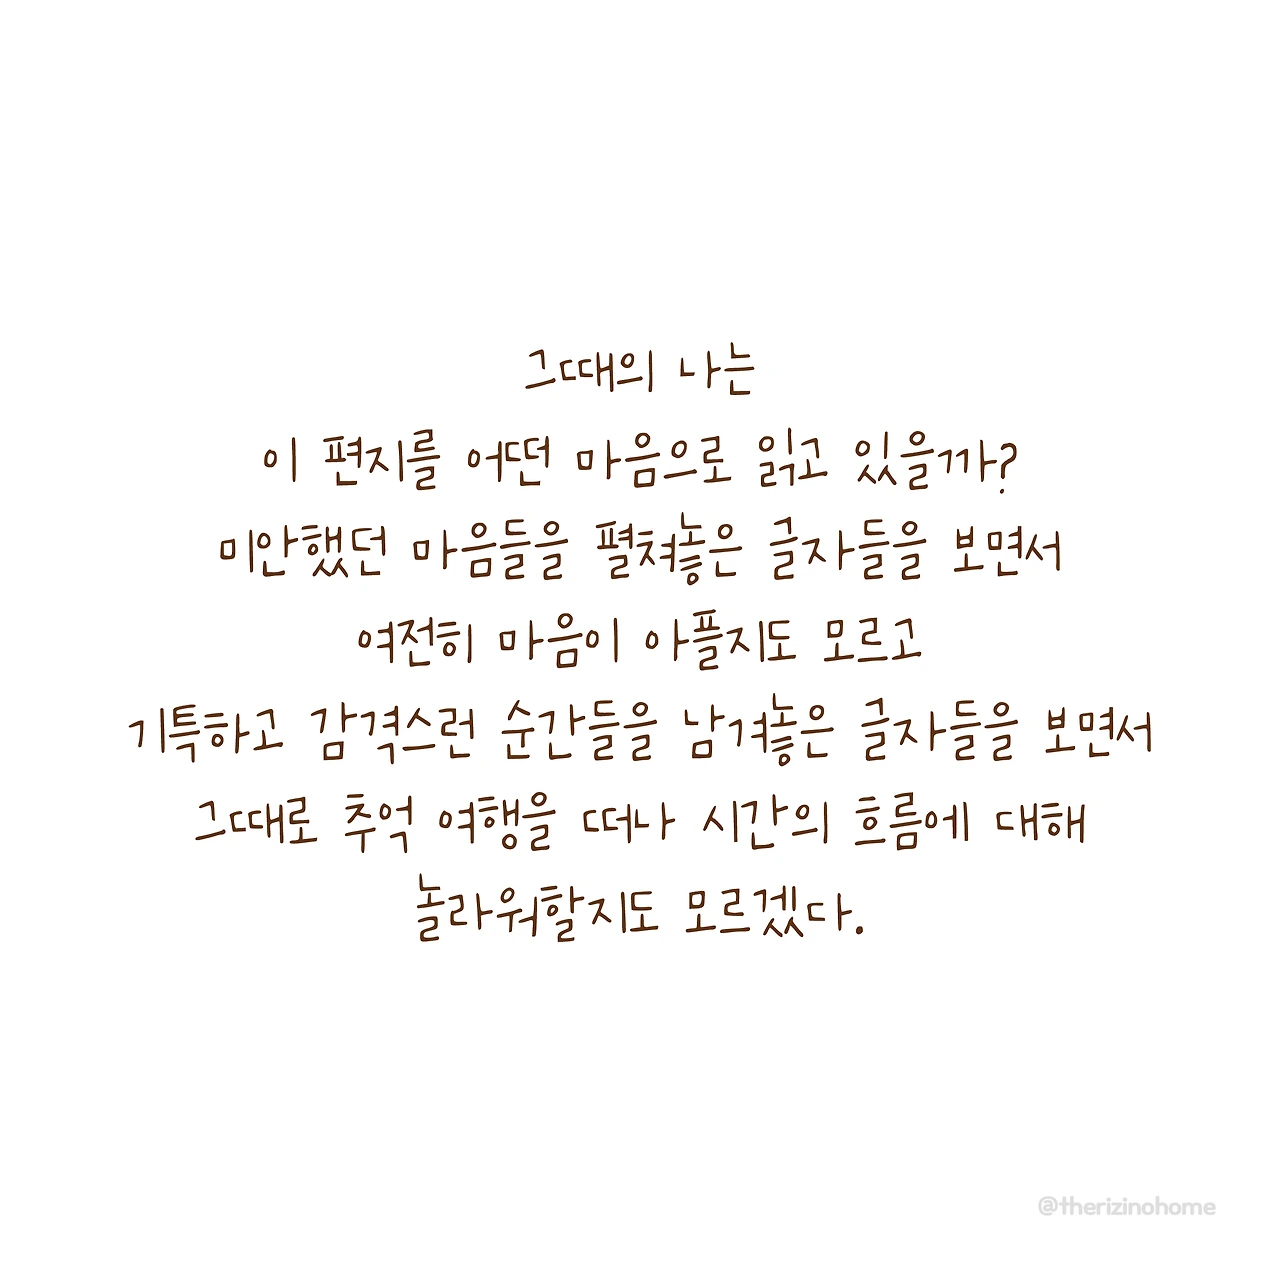 그때의 나는
이 편지를 어떤 마음으로 읽고 있을까?
미안했던 마음들을 펼쳐놓은 글자들을 보면서
여전히 마음이 아플지도 모르고
기특하고 감격스런 순간들을 남겨놓은 글자들을 보면서
그때로 추억 여행을 떠나 시간의 흐름에 대해
놀라워할지도 모르겠다.
@therizinohome